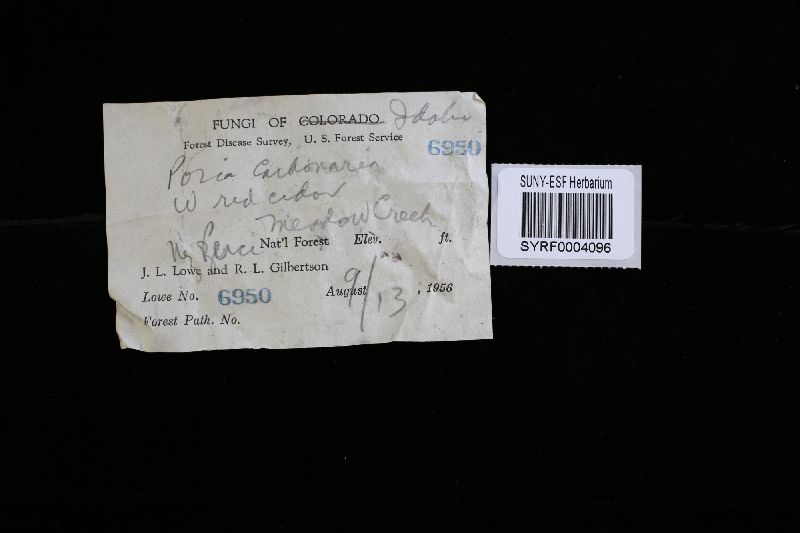 FUNGI OF COLORADO Idaho
Forest Disease Survey, U. S. Forest Service
6950
Poria Carbonaria
W red cedar
Meadow Creek
Nez Perce Nat'l Forest Elev. ft.
J. L. Lowe and R. L. Gilbertson
Lowe No. 6950 August 9/13, 1956
Forest Path. No.
SUNY-ESF Herbarium
SYRF0004096